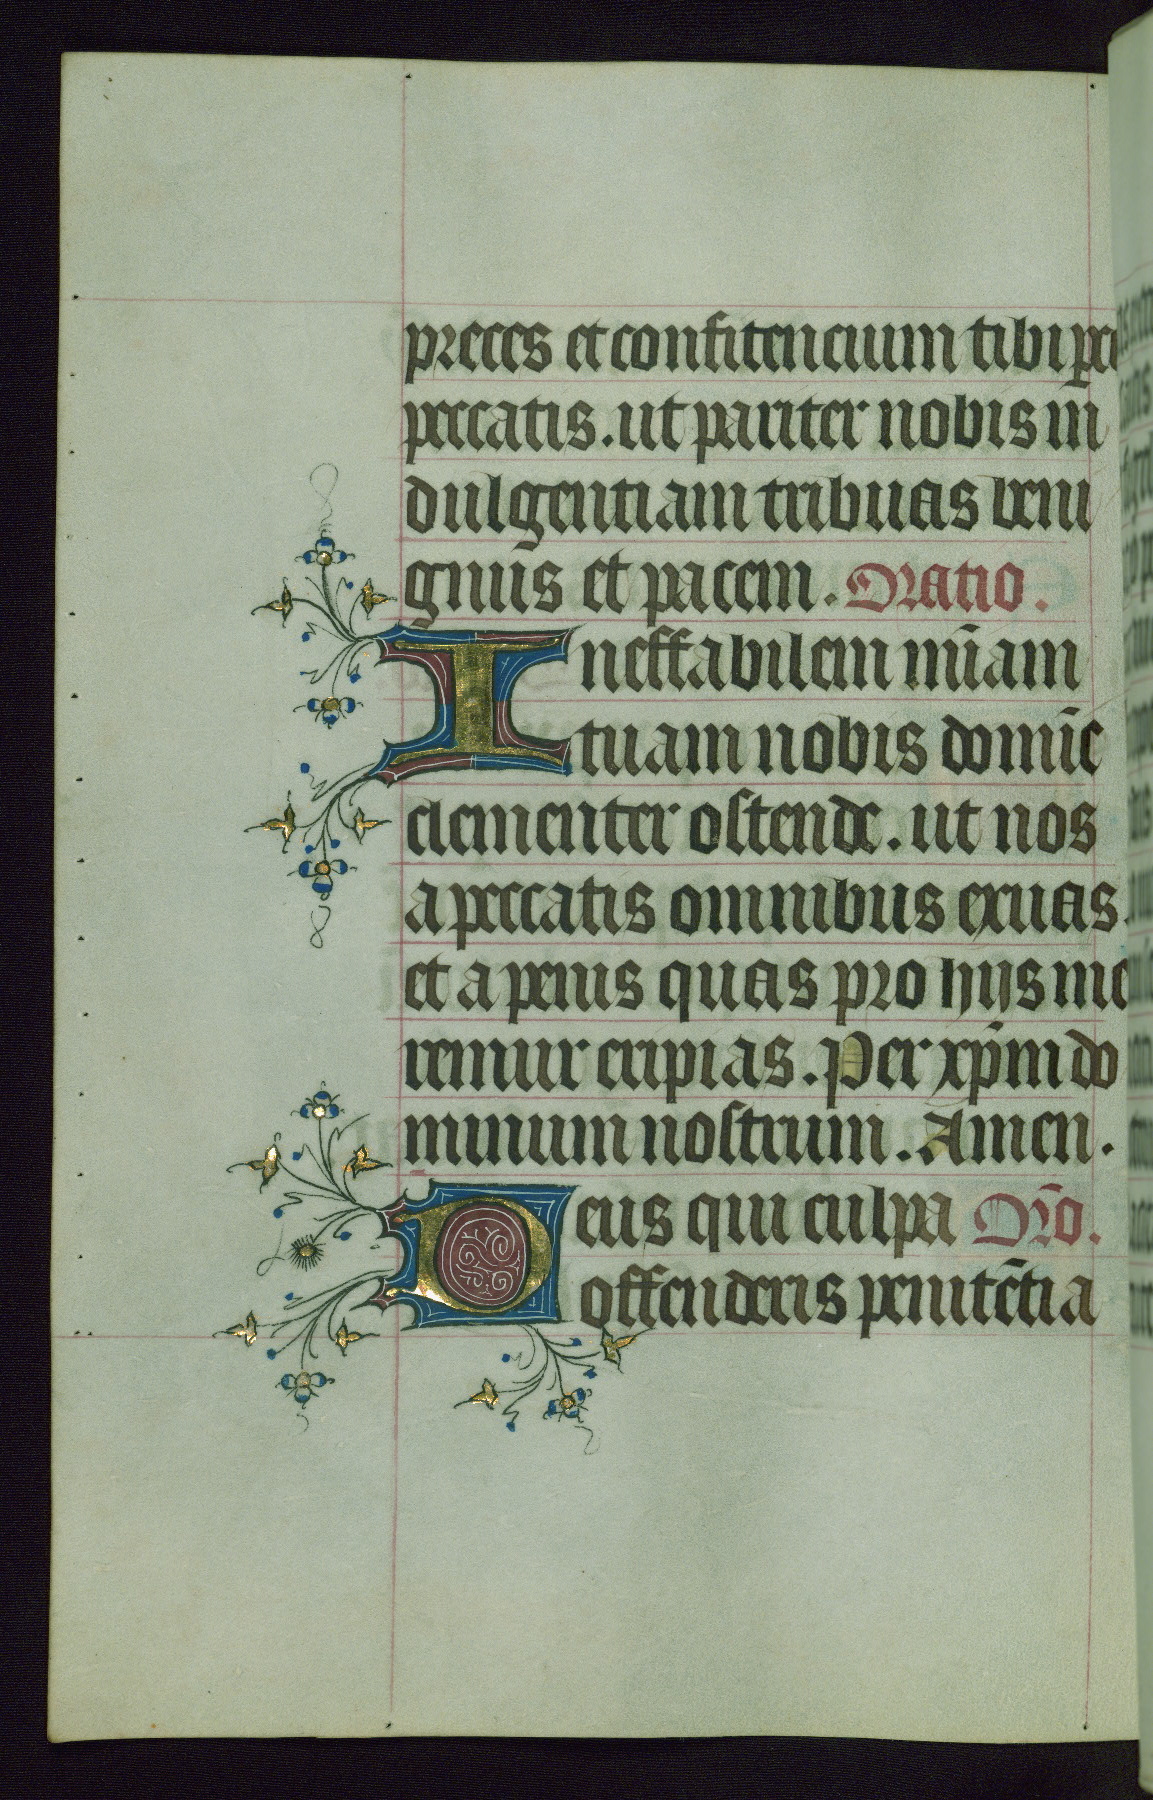 preces et confitencium tibi
peccatis. ut pariter nobis in
dulgentiam tribuas beni
gnus et pacem. Oratio.
Ineffabilem mi̅am
tuam nobis domi̅e
clementer ostende. ut nos
a peccatis omnibus exuas.
et a penis quas pro hijs me
remur eripias. Per xp̅m do
minum nostrum. Amen.
Deus qui culpa Or̅o.
offenderis penite̅tia